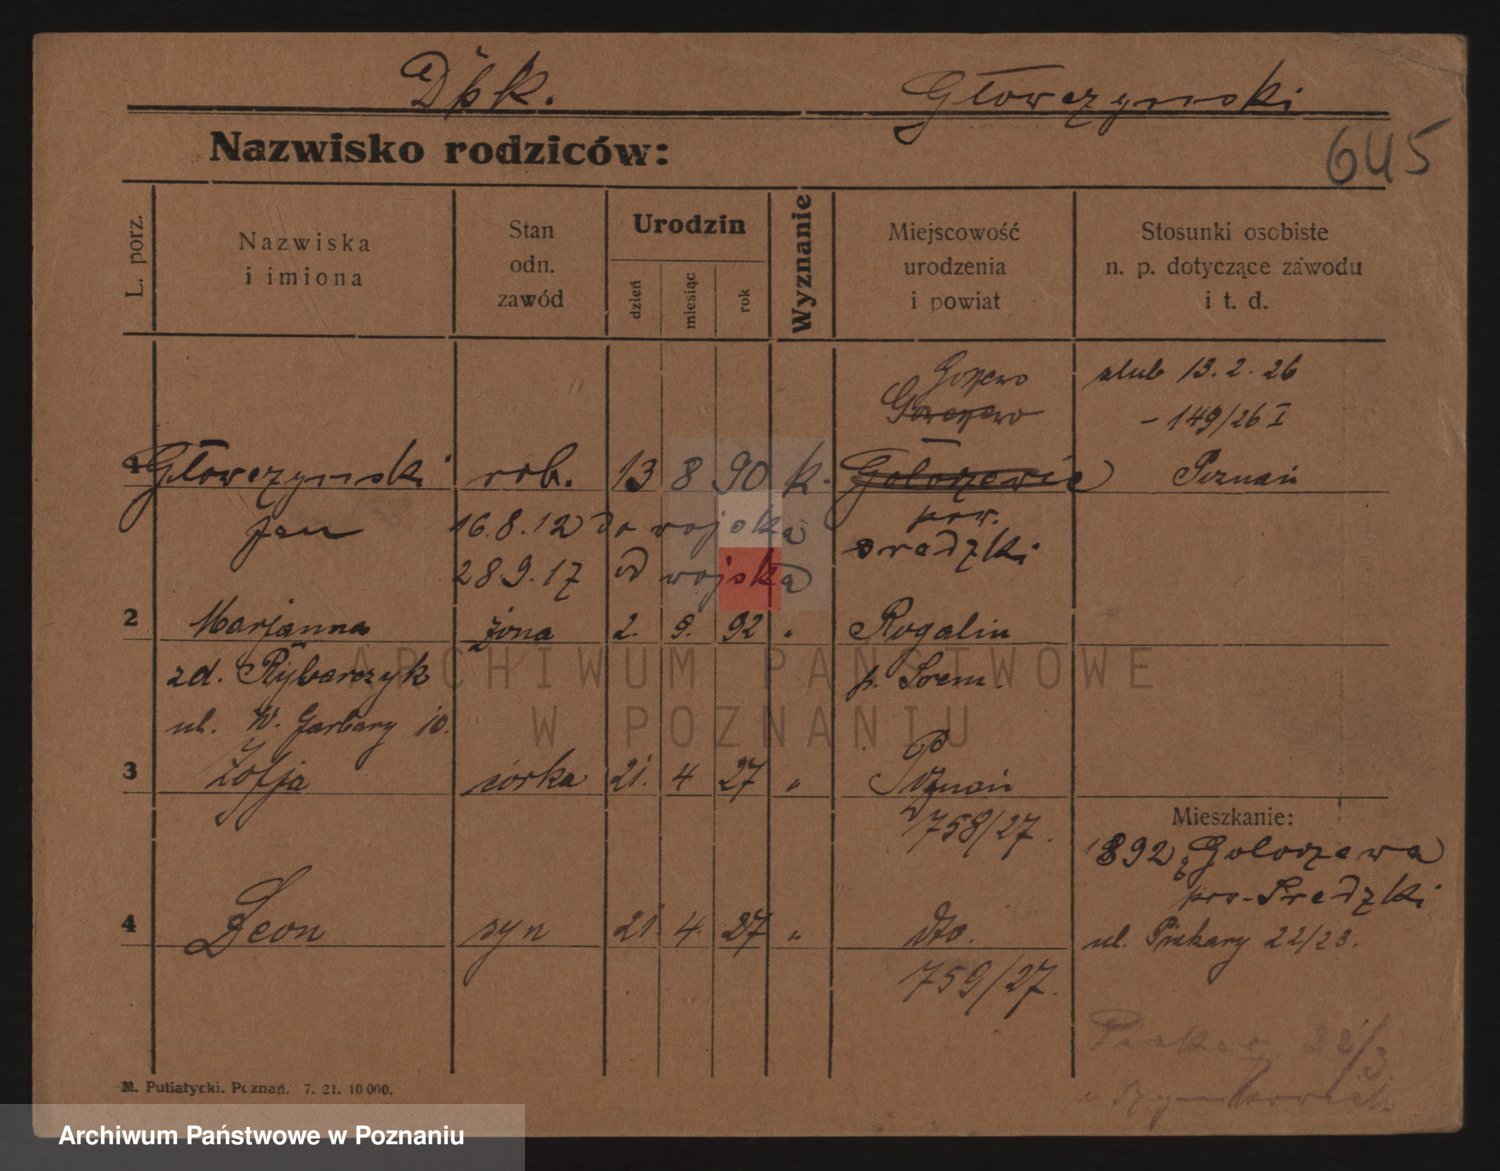 Głowczynski
Nazwisko rodziców:
645
L. porz.
Nazwiska
i imiona
Stan
odn.
zawód
Urodzin
dzień
miesiąc
rok
Wyznanie
Miejscowość
urodzenia
i powiat
Stosunki osobiste
n. p. dotyczące zawodu
i t. d.
slub 13. 2. 26
- 149/26 I
1 Głowczynski rob. 13 8 90 k. Poznań
Jan 16. 8. 12 do wojska pow.
28 9. 17 od wojska sredzki
2 Marjanna żona 2. 9. 92 " Rogalin
zd. Rybarczyk p. Srem.
ul. W. Garbary 10.
3 Zofja córka 21. 4 27 " Poznań
758/27.
Mieszkanie:
pow. Sredzki
4 Leon syn 21. 4. 27 " dto.
ul. Piekary 22/23.
759/27.
M. Putiatycki. Poznań. 7. 21. 10 000.
ARCHIWUM PAŃSTWOWE
W POZNANIU
Archiwum Państwowe w Poznaniu